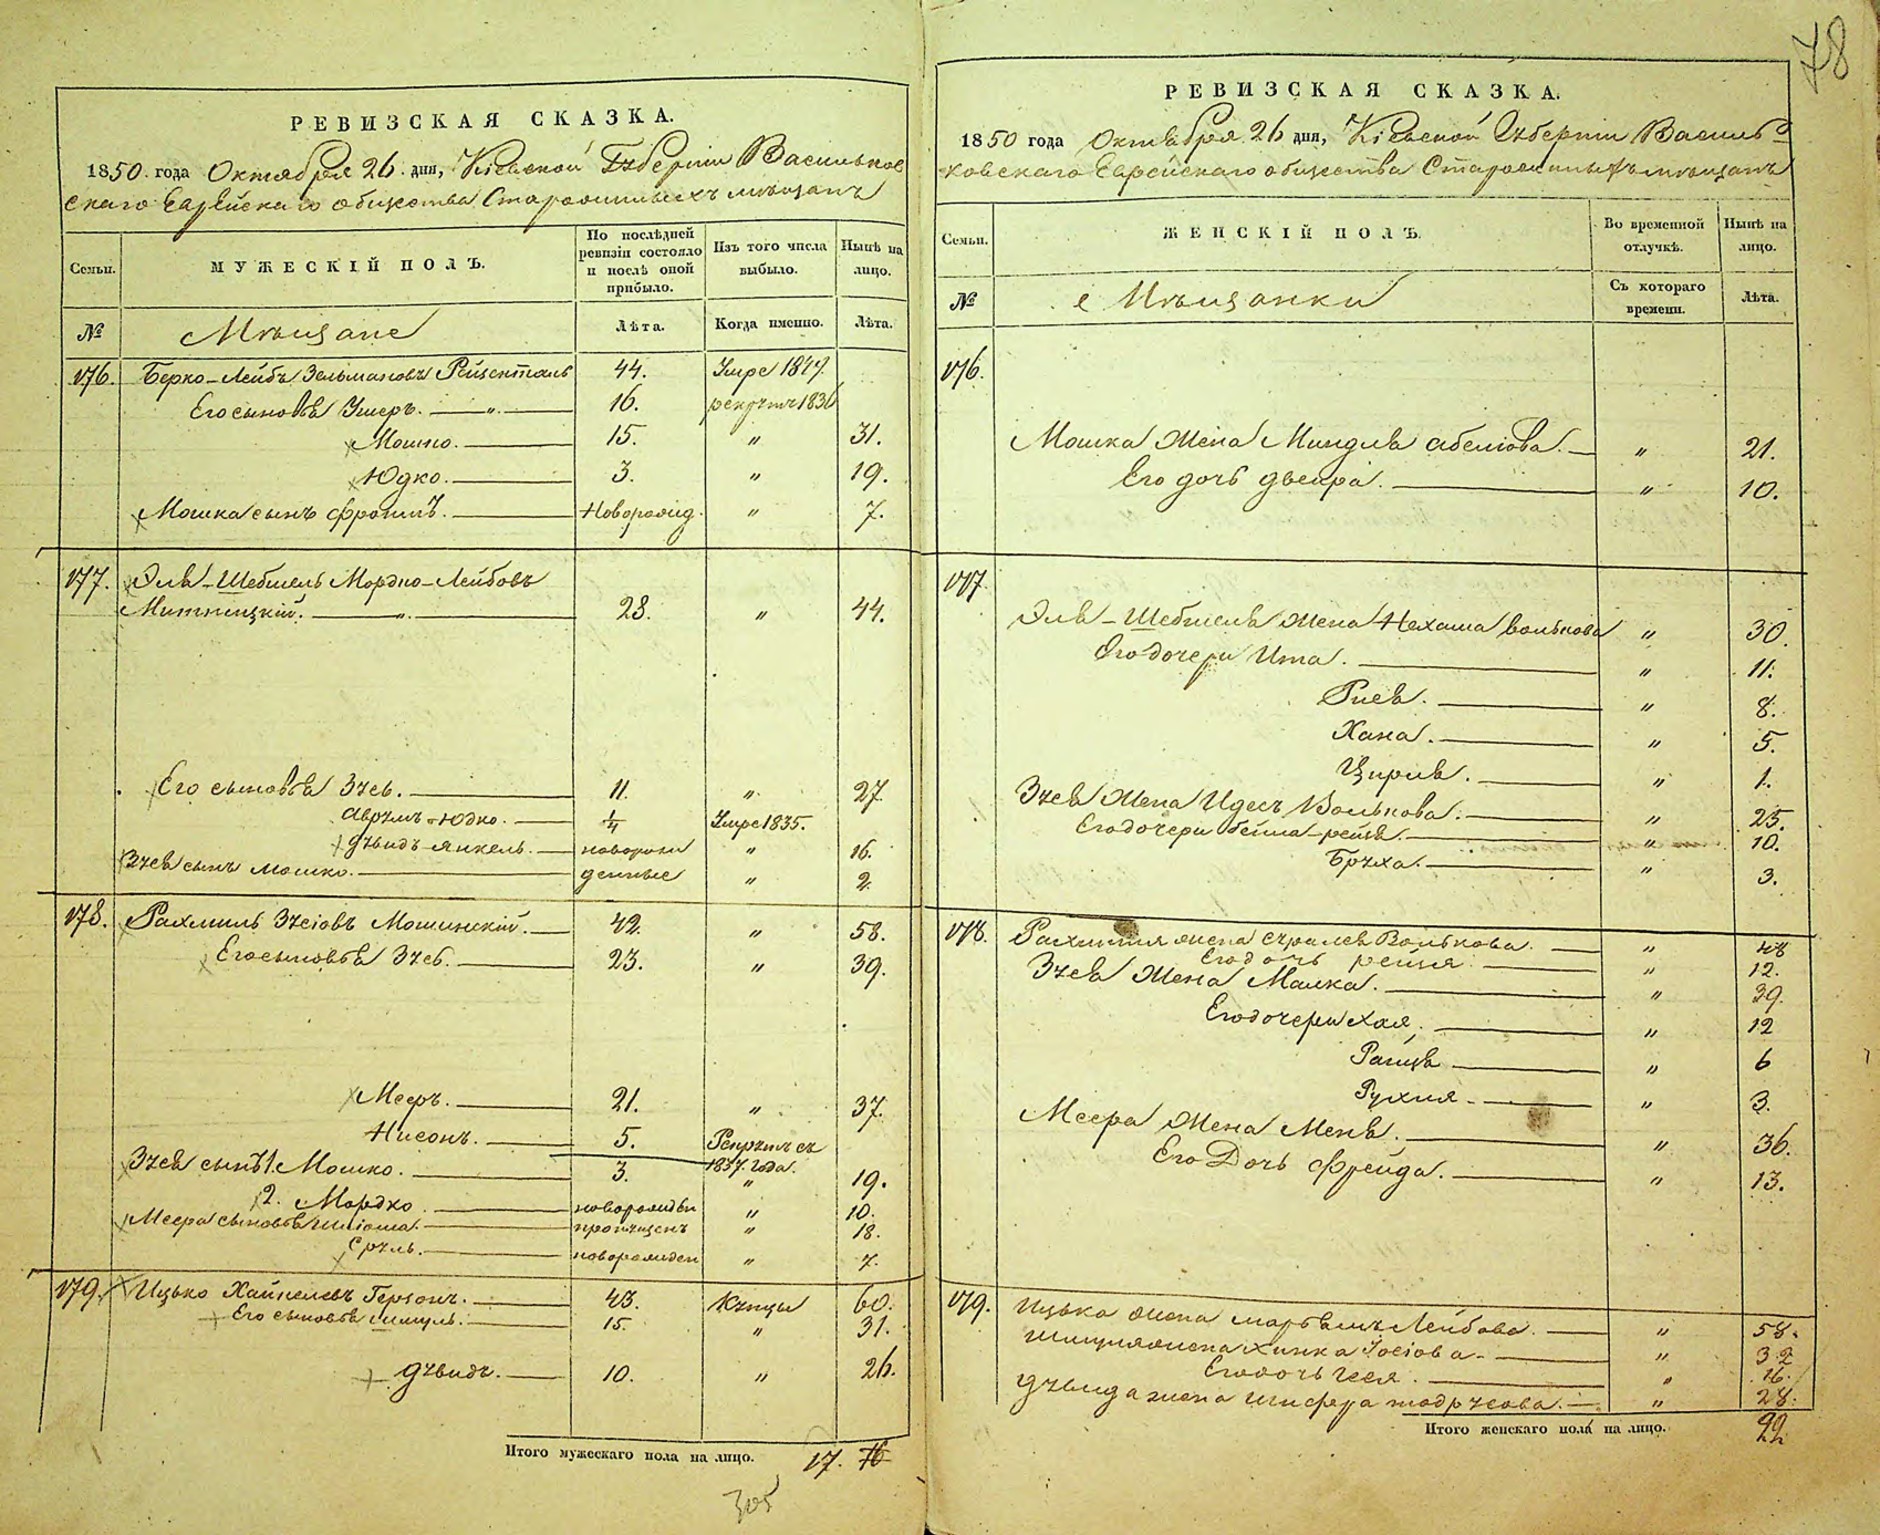 78
РЕВИЗСКАЯ СКАЗКА.
1850. года Октября 26. дня, Кіевской Губерніи Васильков
скаго Еврейскаго общества Старожилыхъ мѣщанъ
Семьи.
МУЖЕСКІЙ ПОЛЪ.
По послѣдней ревизіи состояло и послѣ оной прибыло.
Изъ того числа выбыло.
Нынѣ на лицо.
№
Мѣщане
Лѣта.
Когда именно.
Лѣта.
176. Берко-Лейбъ Зельмановъ 44. Умре 1849.
Его сыновья Ушеръ. — „ — 16. рекрутъ 1836
Мошко. 15. „ 31.
Юдко. 3. „ 19.
Мошка сынъ Фроимъ. новорожд. „ 7.
177. Эля-Шебшель Мордко-Лейбовъ
Митницкій. — „ — 28. „ 44.
Его сыновья Зусь. 11. „ 27.
Аврумъ-Юдко. 1/4 Умре 1835.
Дувидъ-Янкель. новорож „ 16.
Зуся сынъ Мошко. денные „ 2.
178. Рахмиль Зусіовъ Мошинскій. 42. „ 58.
Его сыновья Зусь. 23. „ 39.
Мееръ. 21. „ 37.
Нисонъ. 5. Рекрутъ съ
1837. года.
Зуся сынъ 1. Мошко. 3. „ 19.
2. Мордко новорожден „ 10.
Меера сыновья пропущенъ „ 18.
Сруль. новорожден „ 7.
179. Ицько Герзонъ. 43. Купцы 60.
Его сыновья Шмуль. 15. „ 31.
Дувидъ. 10. „ 26.
Итого мужескаго пола на лицо. 17. 16
305
РЕВИЗСКАЯ СКАЗКА.
1850 года Октября 26 дня, Кіевской Губерніи Василь-
ковскаго Еврейскаго общества Старожилыхъ мѣщанъ
Семьи.
ЖЕНСКІЙ ПОЛЪ.
Во временной отлучкѣ.
Нынѣ на лицо.
№
Мѣщанки
Съ котораго времени.
Лѣта.
176.
Мошка жена Миндля Абеліова. „ 21.
Его дочь Двейра. „ 10.
177.
Эля-Шебшеля жена Нехама Волькова „ 30.
Его дочери Ита. „ 11.
Рися. „ 8.
Хана. „ 5.
Цирля. „ 1.
Зуся жена Идесъ Волькова. „ 25.
Его дочери Бейла-Рейзя. „ 10.
Бруха. „ 3.
178. Рахмиля жена Сураля Волькова. „ 48
Его дочь Рейзя. „ 12.
Зуся жена Малка. „ 39.
Его дочери Хая. „ 12
Раися „ 6
Рухля. „ 3.
Меера жена Меня. „ 36.
Его дочь Фрейда. „ 13.
179. Ицька жена Марьямъ Лейбова. „ 58.
Шмуля жена Хинка Іосіова. „ 32
Его дочь Гися. „ 16.
Дувида жена „ 28.
Итого женскаго пола на лицо. 22